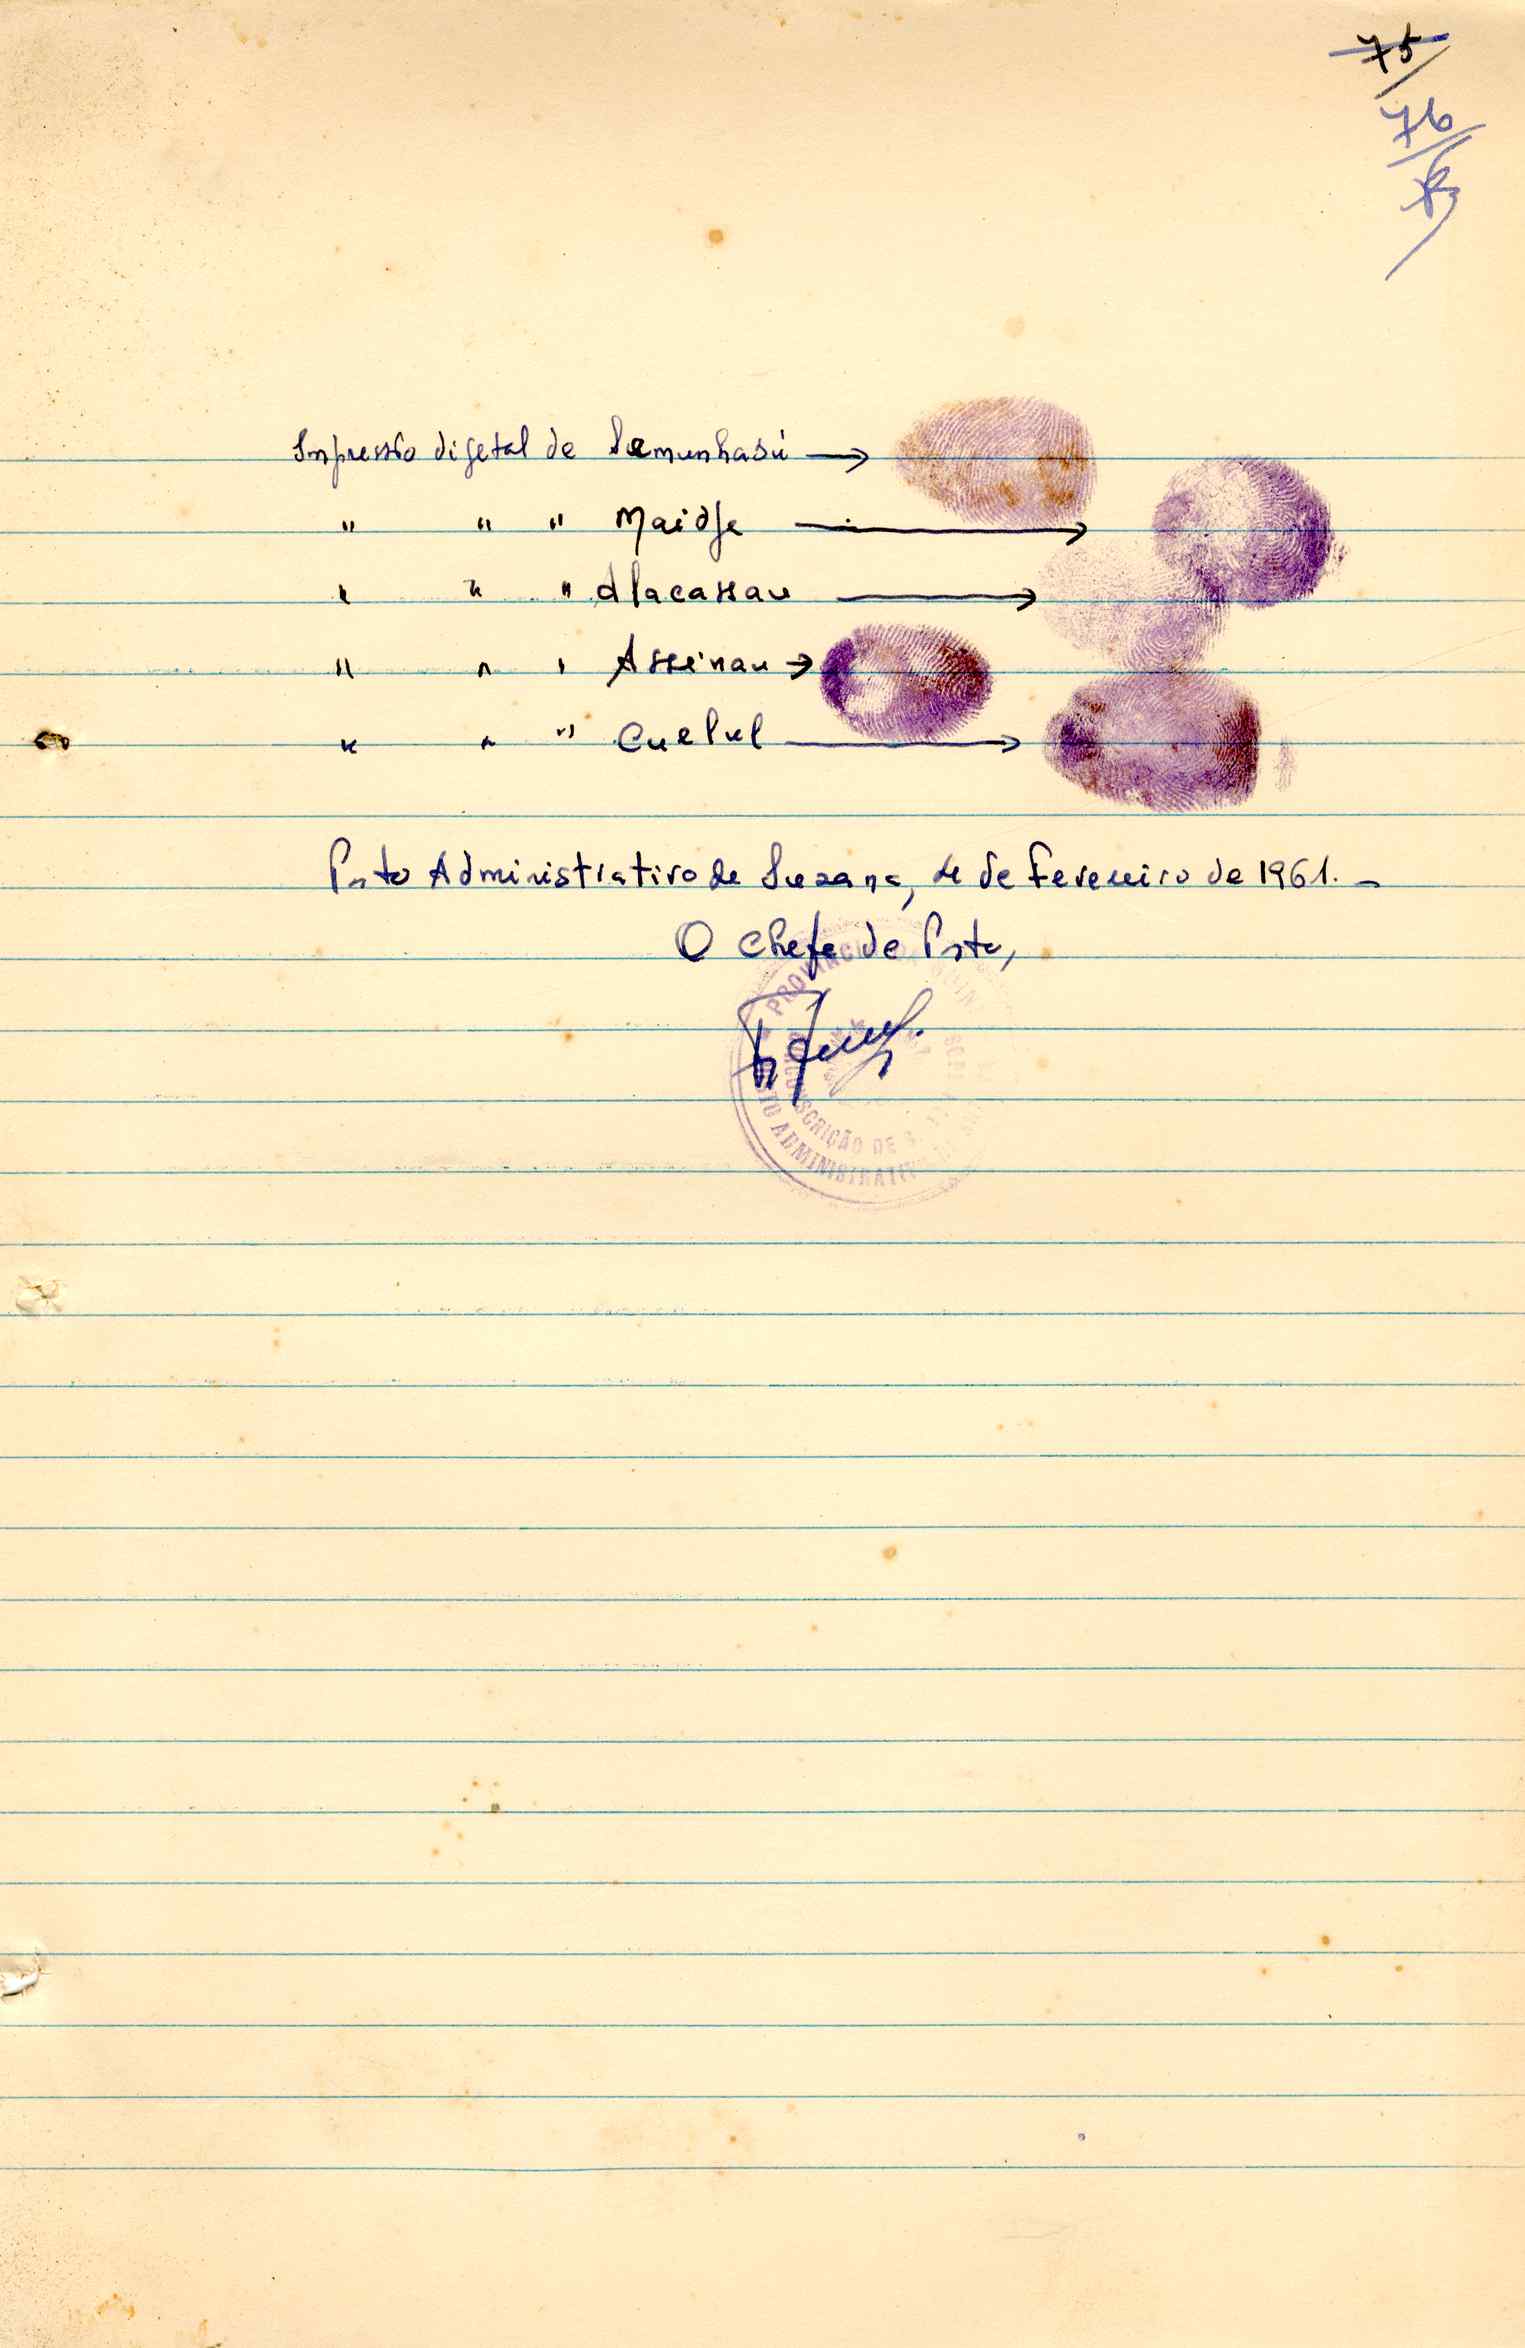 75
76
Impressão digetal de Semunhasú →
" " " Maidje →
" " " Alacassau →
" " " Assinau →
" " " Cuelul →
Posto Administrativo de Suzana, 4 de Fevereiro de 1961. –
O Chefe de Posto,
PROVÍNCIA DA GUINÉ
CIRCUNSCRIÇÃO DE S.
POSTO ADMINISTRATIVO